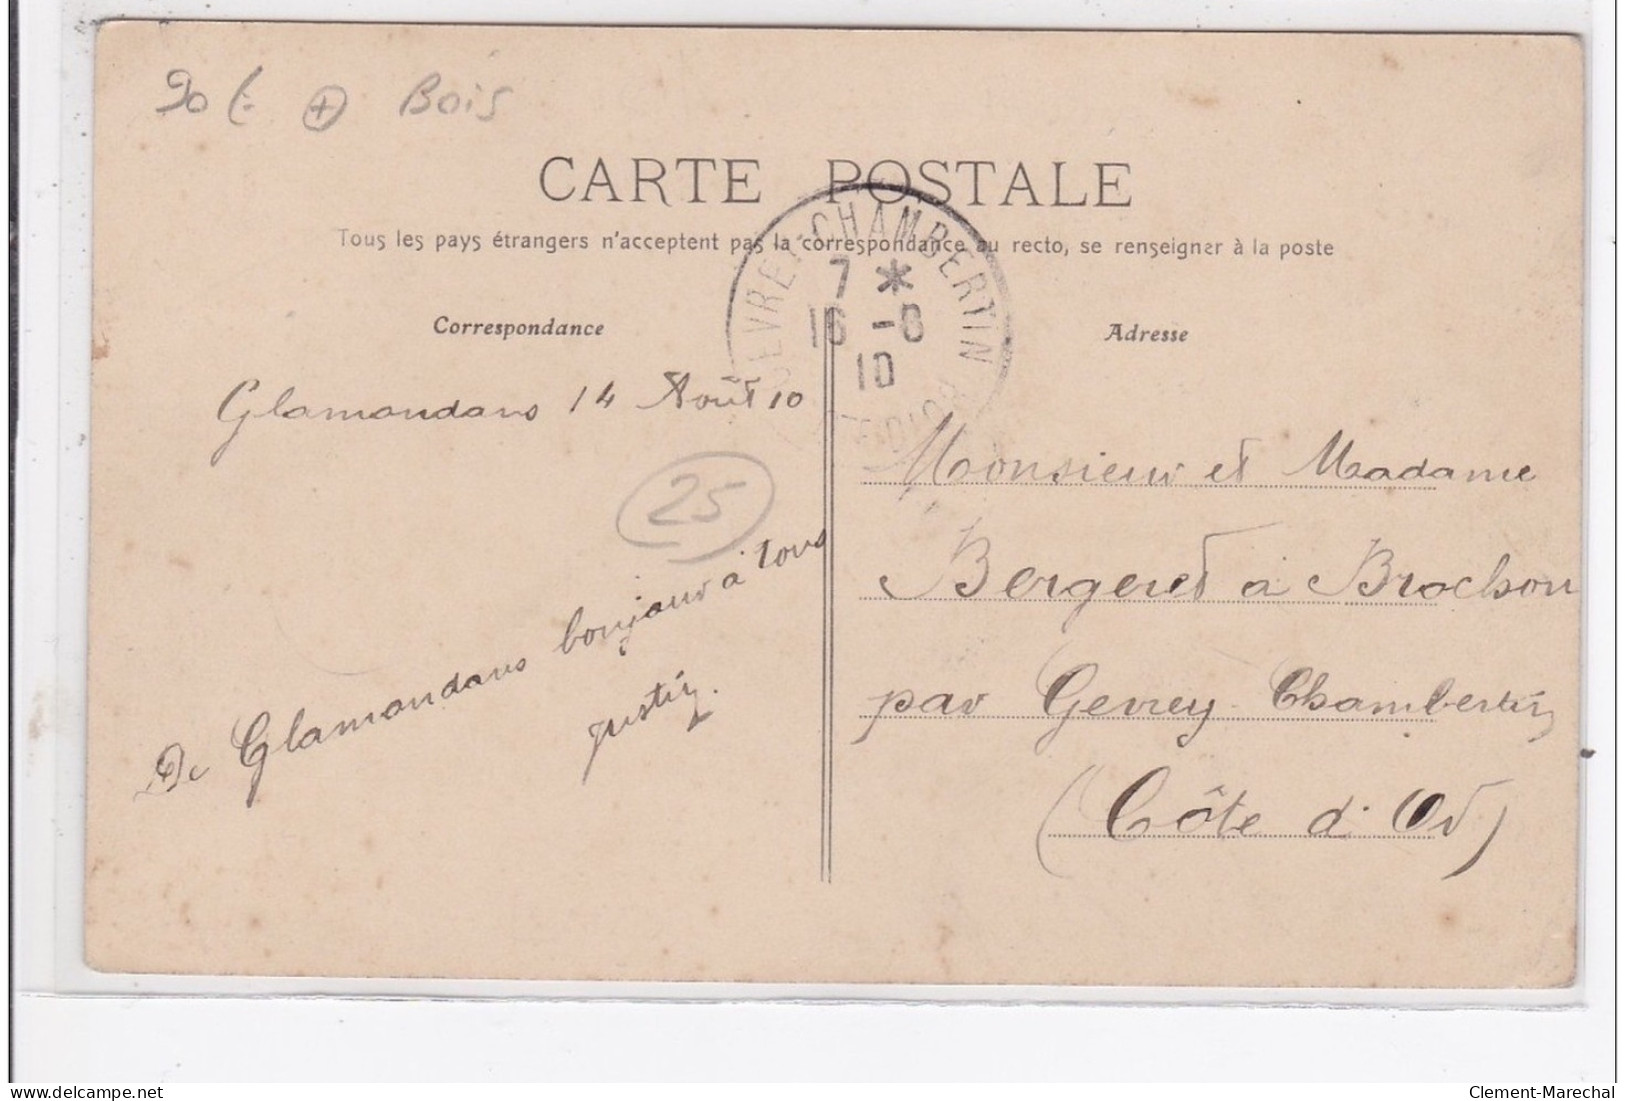 90 € + Bois
CARTE POSTALE
Tous les pays étrangers n'acceptent pas la correspondance au recto, se renseigner à la poste
GEVREY-CHAMBERTIN
7 *
16 -8
10
CÔTE D'OR
Correspondance
Glamondans 14 Août 10
25
De Glamondans bonjour à tous
Justin.
Adresse
Monsieur et Madame
Bergeret à Brochon
par Gevrey-Chambertin
(Côte d'Or)
delcampe.net
Clement-Marechal